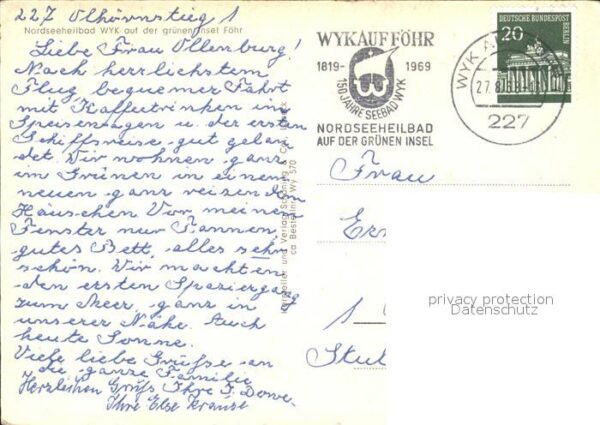 227 Olhörnstieg 1
Nordseeheilbad WYK auf der grünen Insel Föhr
Liebe Frau Ollenburg!
Nach herrlichstem
Flug bequemer Fahrt
mit Kaffeetrinken im
Speisewagen u. der ersten
Schiffsreise, gut gelan
det. Wir wohnen ganz
im Grünen in einem
neuen ganz reizenden
Häuschen Vor meinem
Fenster nur Tannen,
gutes Bett, alles sehr
schön. Wir machten
den ersten Spaziergang
zum Meer, ganz in
unserer Nähe. Auch
heute Sonne.
Viele liebe Grüsse an
die ganze Familie
Herzlichen Gruß Ihre J. Dowe-
Ihre Else Krause
Hersteller und Verlag Schöning & Co
Bestellnr. WY 570
WYK AUF FÖHR
1819- 1969
150 JAHRE SEEBAD WYK
NORDSEEHEILBAD
AUF DER GRÜNEN INSEL
DEUTSCHE BUNDESPOST
BERLIN
20
WYK
27.8.69
227
Frau
1
privacy protection
Datenschutz